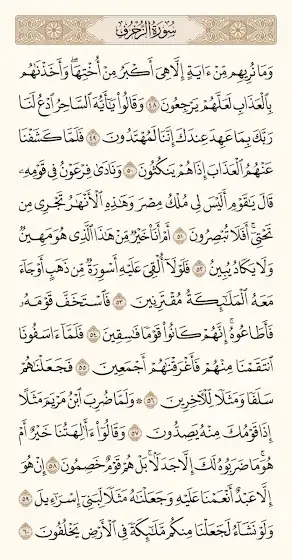 سُورَةُ الزُّخْرُفِ
وَمَا نُرِيهِم مِّنْ ءَايَةٍ إِلَّا هِىَ أَكْبَرُ مِنْ أُخْتِهَا ۖ وَأَخَذْنَٰهُم
بِٱلْعَذَابِ لَعَلَّهُمْ يَرْجِعُونَ ٤٨ وَقَالُوا۟ يَٰٓأَيُّهَ ٱلسَّاحِرُ ٱدْعُ لَنَا
رَبَّكَ بِمَا عَهِدَ عِندَكَ إِنَّنَا لَمُهْتَدُونَ ٤٩ فَلَمَّا كَشَفْنَا
عَنْهُمُ ٱلْعَذَابَ إِذَا هُمْ يَنكُثُونَ ٥٠ وَنَادَىٰ فِرْعَوْنُ فِى قَوْمِهِۦ
قَالَ يَٰقَوْمِ أَلَيْسَ لِى مُلْكُ مِصْرَ وَهَٰذِهِ ٱلْأَنْهَٰرُ تَجْرِى مِن
تَحْتِىٓ ۖ أَفَلَا تُبْصِرُونَ ٥١ أَمْ أَنَا۠ خَيْرٌ مِّنْ هَٰذَا ٱلَّذِى هُوَ مَهِينٌ
وَلَا يَكَادُ يُبِينُ ٥٢ فَلَوْلَآ أُلْقِىَ عَلَيْهِ أَسْوِرَةٌ مِّن ذَهَبٍ أَوْ جَآءَ
مَعَهُ ٱلْمَلَٰٓئِكَةُ مُقْتَرِنِينَ ٥٣ فَٱسْتَخَفَّ قَوْمَهُۥ
فَأَطَاعُوهُ ۚ إِنَّهُمْ كَانُوا۟ قَوْمًا فَٰسِقِينَ ٥٤ فَلَمَّآ ءَاسَفُونَا
ٱنتَقَمْنَا مِنْهُمْ فَأَغْرَقْنَٰهُمْ أَجْمَعِينَ ٥٥ فَجَعَلْنَٰهُمْ
سَلَفًا وَمَثَلًا لِّلْءَاخِرِينَ ٥٦ ۞ وَلَمَّا ضُرِبَ ٱبْنُ مَرْيَمَ مَثَلًا
إِذَا قَوْمُكَ مِنْهُ يَصِدُّونَ ٥٧ وَقَالُوٓا۟ ءَأَٰلِهَتُنَا خَيْرٌ أَمْ
هُوَ ۚ مَا ضَرَبُوهُ لَكَ إِلَّا جَدَلًۢا ۚ بَلْ هُمْ قَوْمٌ خَصِمُونَ ٥٨ إِنْ هُوَ
إِلَّا عَبْدٌ أَنْعَمْنَا عَلَيْهِ وَجَعَلْنَٰهُ مَثَلًا لِّبَنِىٓ إِسْرَٰٓءِيلَ ٥٩
وَلَوْ نَشَآءُ لَجَعَلْنَا مِنكُم مَّلَٰٓئِكَةً فِى ٱلْأَرْضِ يَخْلُفُونَ ٦٠